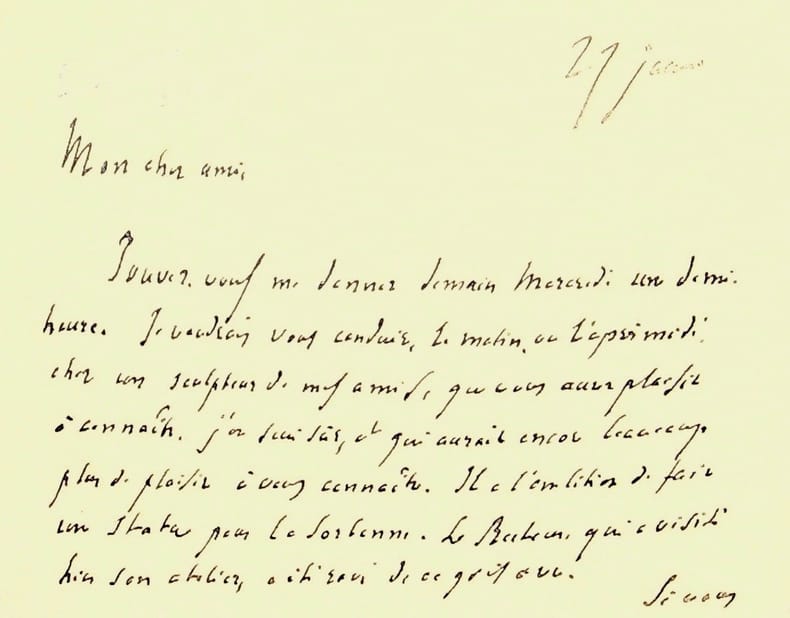 27 janvier
Mon cher ami,
Pouvez-vous me donner demain Mercredi un demi-
heure. Je voudrais vous conduire, le matin, ou l'après midi,
chez un sculpteur de mes amis, que vous aurez plaisir
à connaître, j'en suis sûr, et qui aurait encore beaucoup
plus de plaisir à vous connaître. Il a l'ambition de faire
une statue pour la Sorbonne. Le Recteur, qui a visité
hier son atelier, a été ravi de ce qu'il a vu.
Si vous